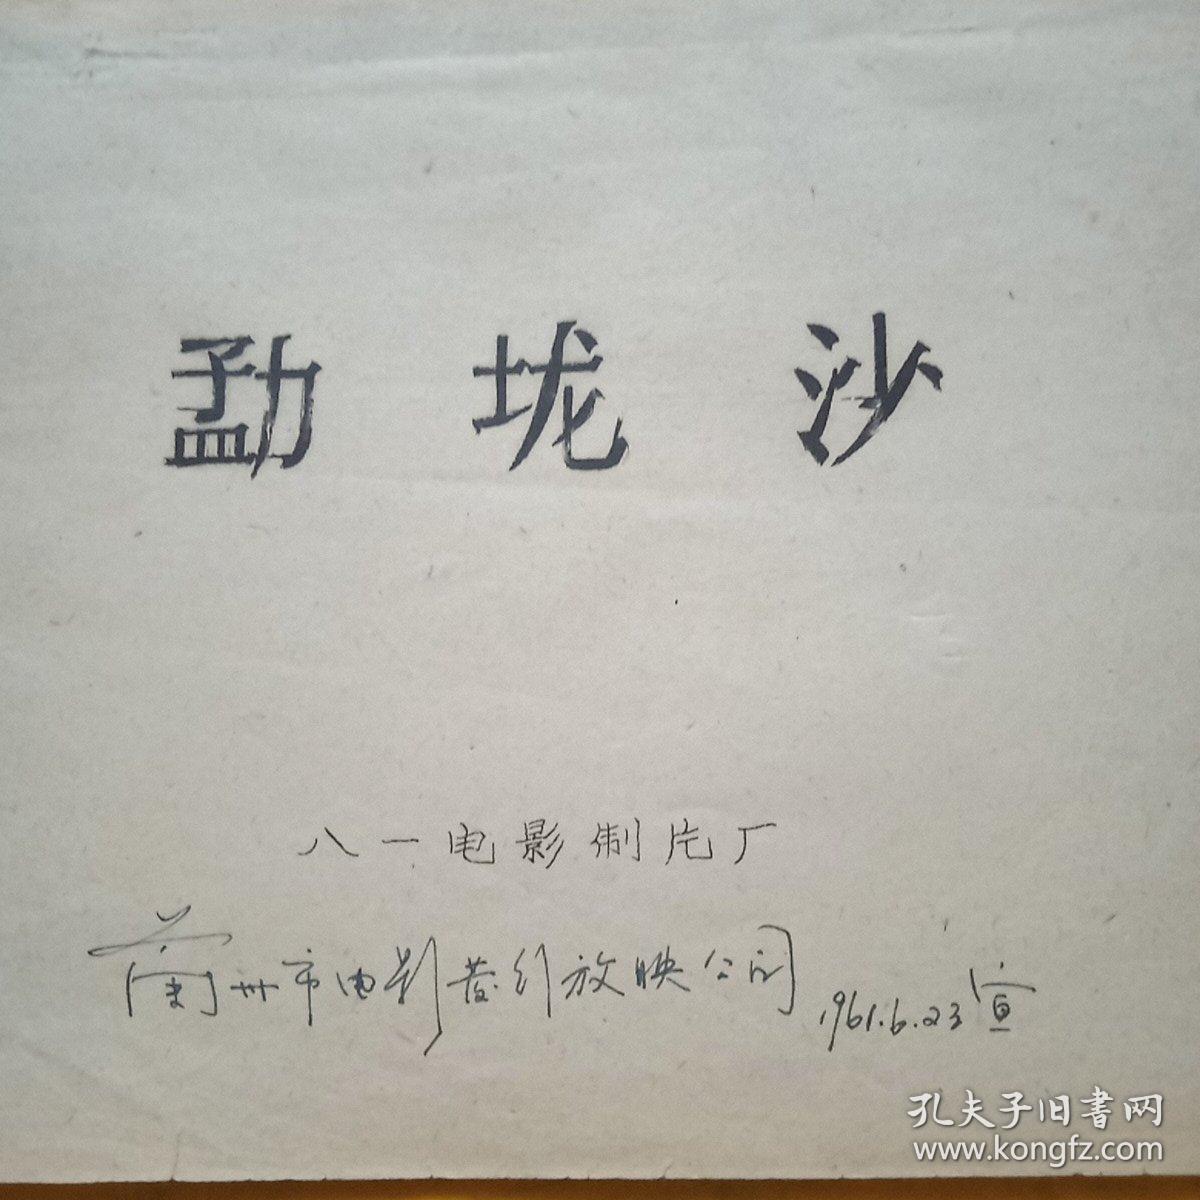 勐垅沙
八一电影制片厂
蘭州市电影发行放映公司 1961.6.23 宣
孔夫子旧書网
www.kongfz.com